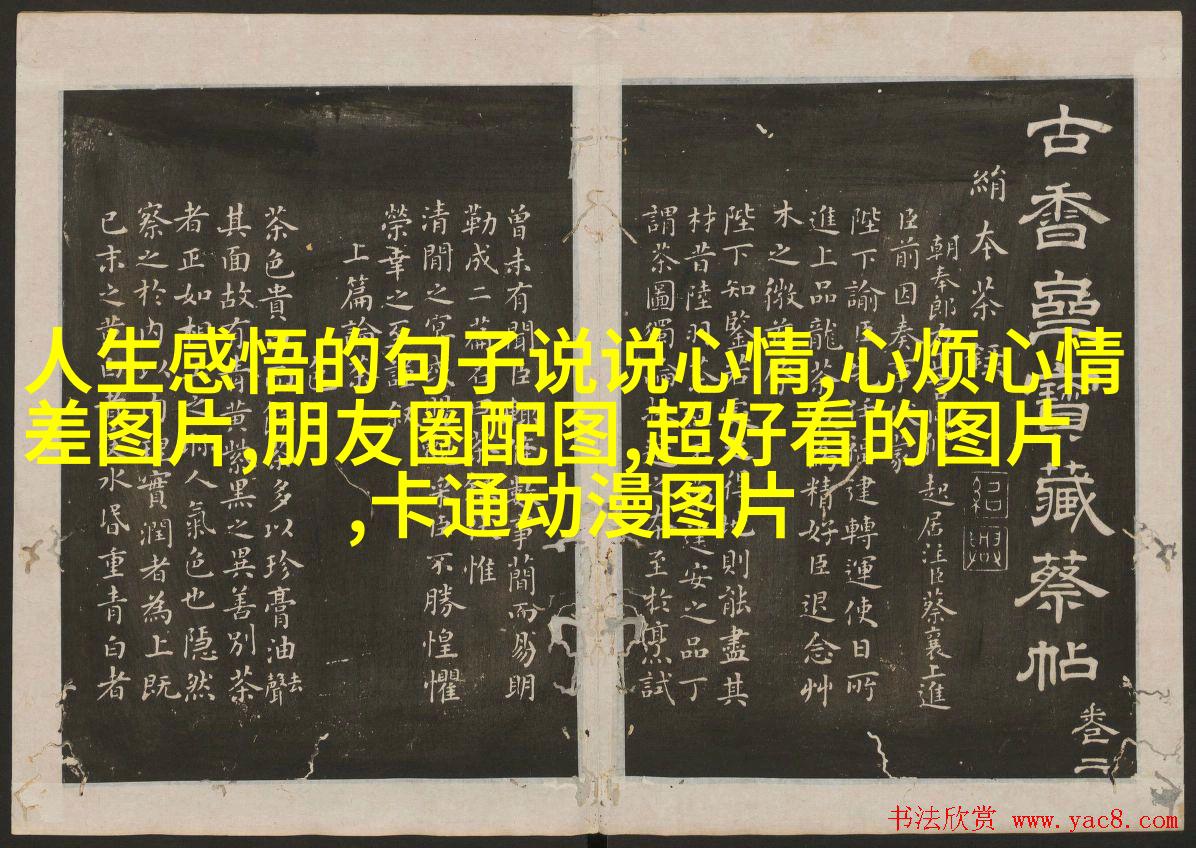 古香齋寶藏蔡帖
卷二
絹本茶
朝奉郎 起居注臣蔡襄上進
臣前因奏事
陛下諭臣 建轉運使日所
進上品龍茶 精好臣退念艸
木之微首
陛下知鑒 得 則能盡其
材昔陸羽茶 建安之品丁
謂茶圖獨 至於烹試
曾未有聞臣 數事簡而易明
勒成二篇 惟
清閒之宴 采臣不勝惶懼
榮幸之至謹叙
上篇論
茶色貴 茶多以珍膏油去聲
其面故有青黃紫黑之異善別茶
者正如相 人氣色也隱然
察之於內以肉理實潤者為上既
已末之黃 水昏重青白者
人生感悟的句子说说心情,心烦心情
差图片,朋友圈配图,超好看的图片
,卡通动漫图片
书法欣赏 www.yac8.com